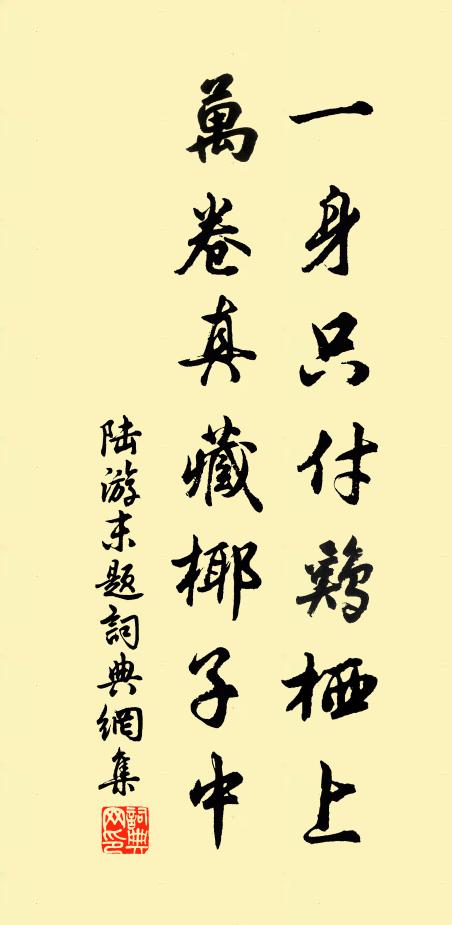 一身只付鷄栖上
萬卷真藏椰子中
陆游末題詞典網集
詞典網印